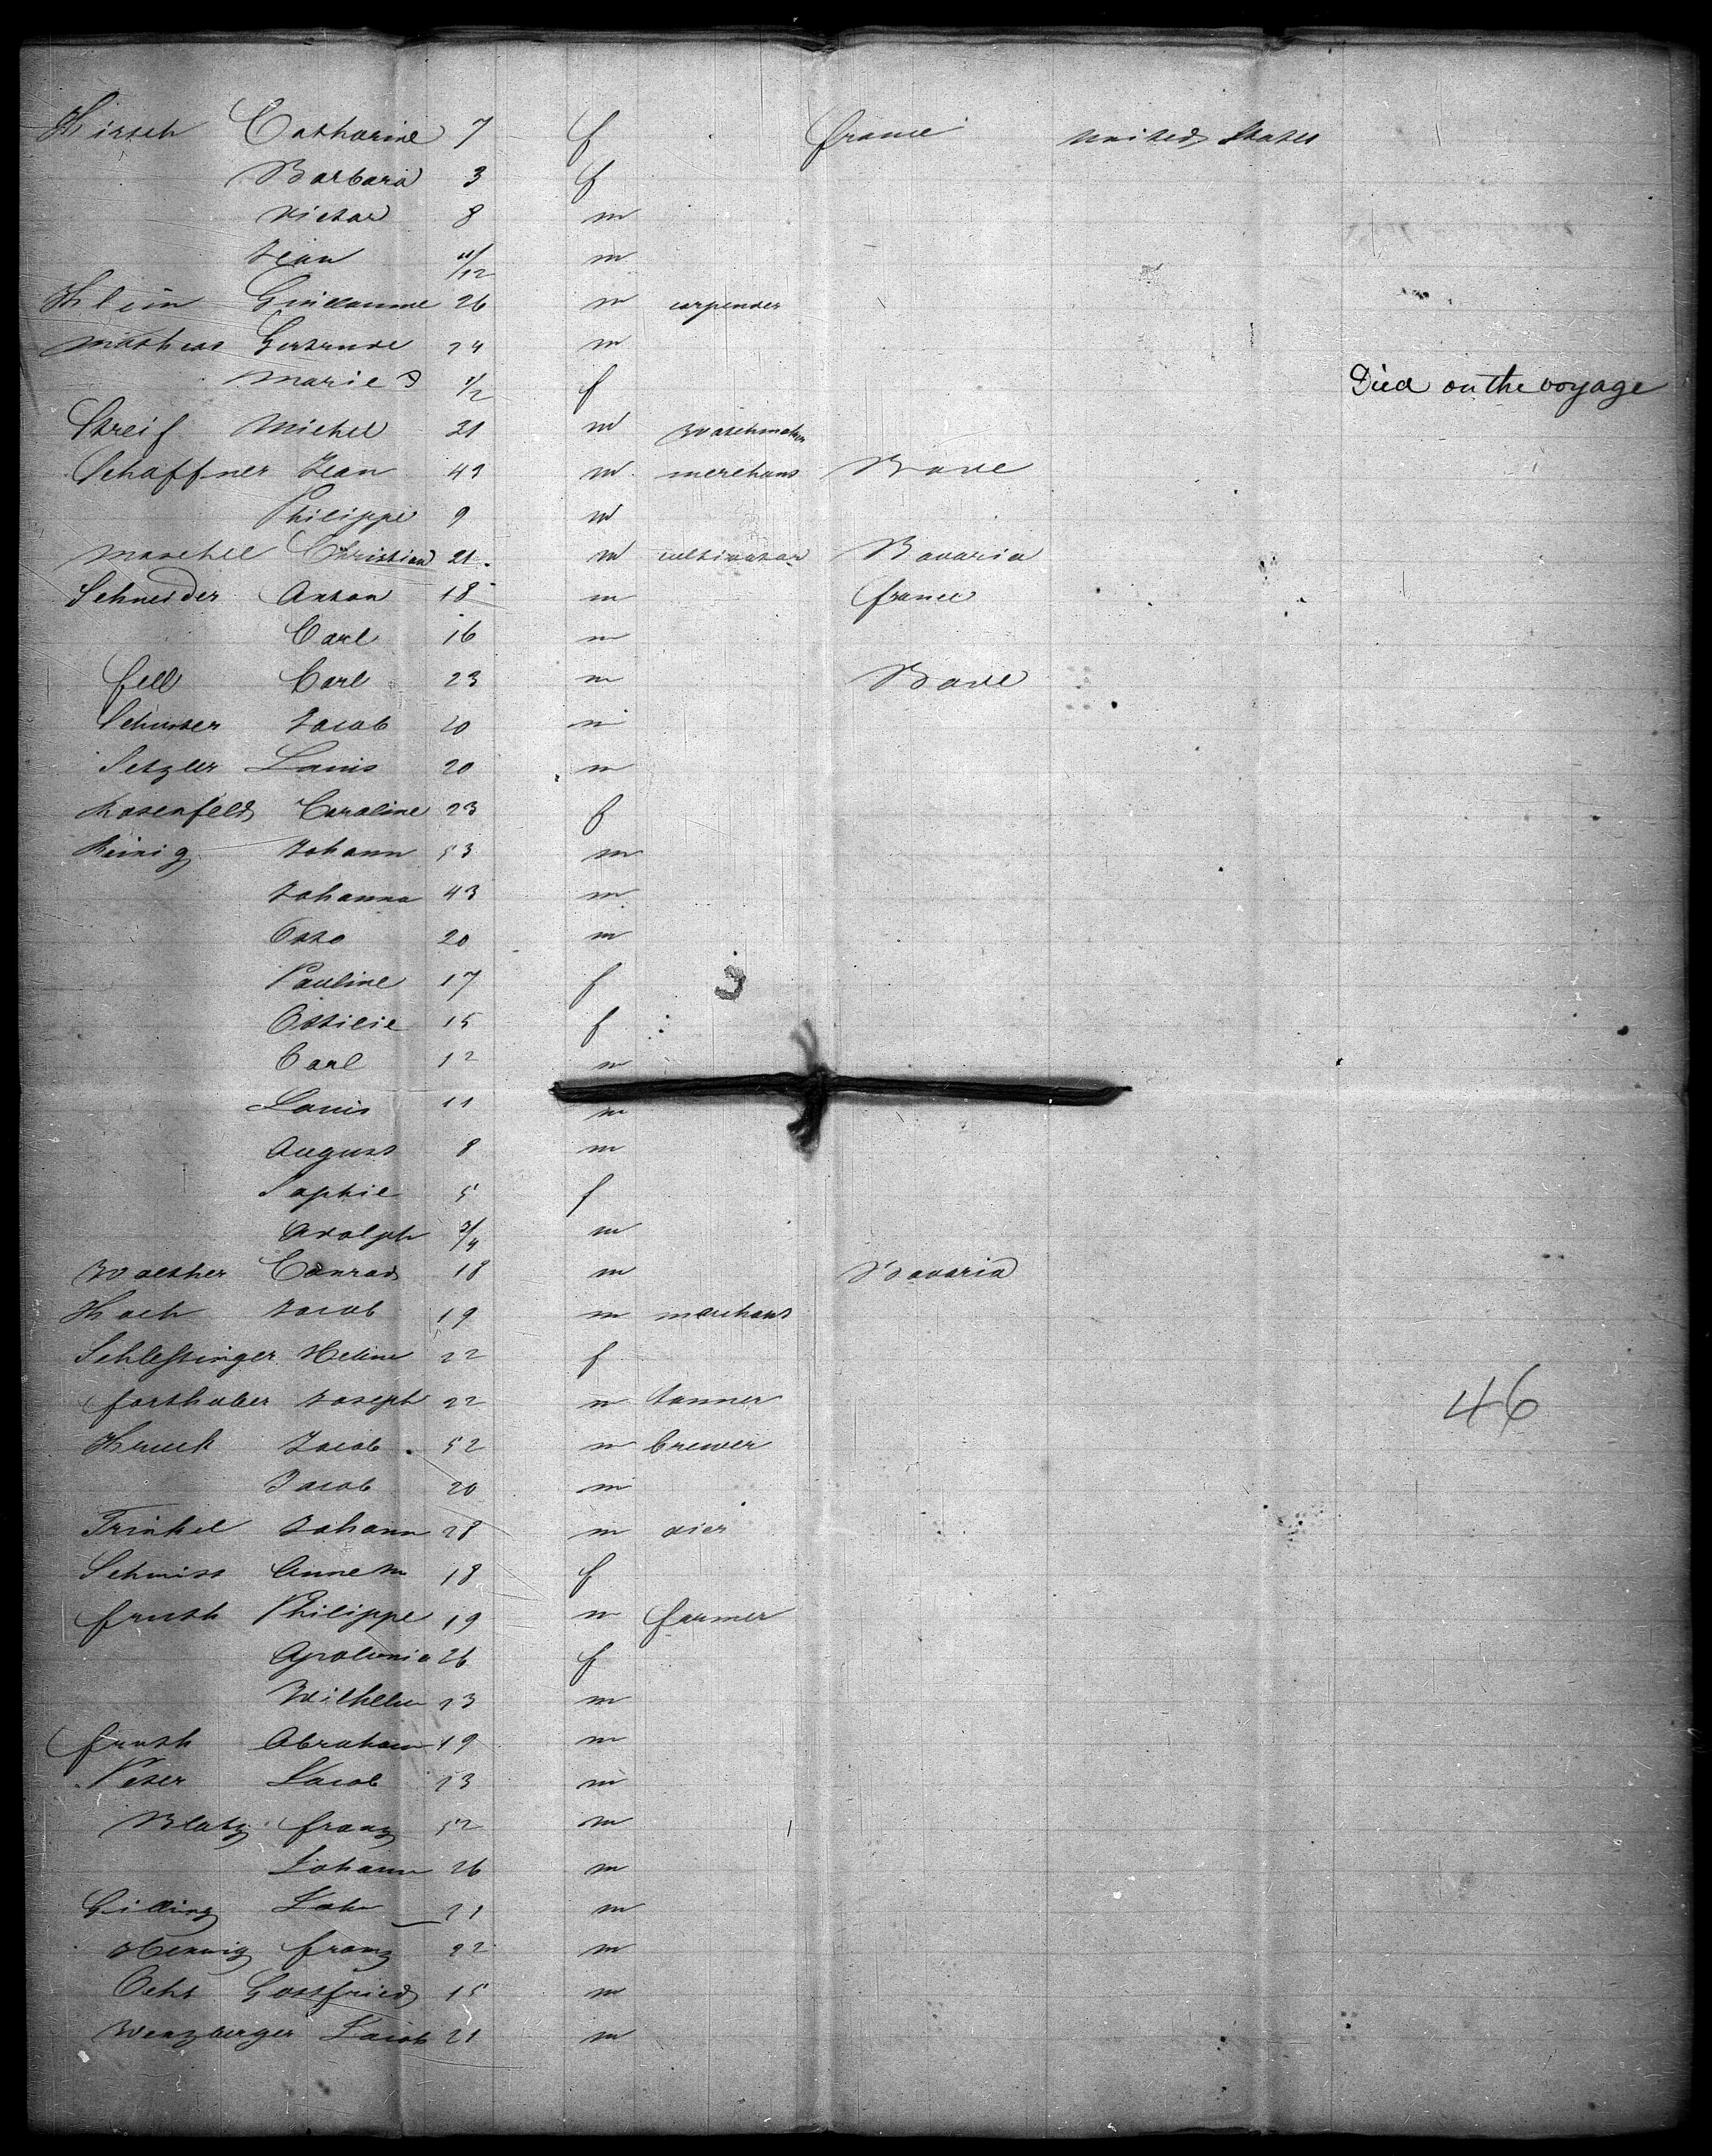 Hirsch Catharine 7 f france united States
Barbara 3 f
Victor 8 m
Jean 11/12 m
Klein Guillaume 26 m carpenter
Mathias Gertrude 24 m
Marie D 1/2 f Died on the voyage
Streif Michel 21 m
Schaffner Jean 49 m merchant Bade
Philippe 9 m
Maschel Christian 21 m cultivator Bavaria
Schneider Anton 18 m france
Carl 16 m
fell Carl 23 m Bade
Schuster Jacob 20 m
Setzler Louis 20 m
Rosenfeld Caroline 23 f
Reinig Johann 53 m
Johanna 43 m
Otto 20 m
Pauline 17 f 3
Ottilie 15 f
Carl 12 m
Louis 11 m
August 8 m
Sophie 5 f
Adolph 3/4 m
Walther Conrad 18 m Bavaria
Koch Jacob 19 m merchant
Schlessinger Heline 22 f
forthuber Joseph 22 m tanner 46
Jacob 52 m brewer
Jacob 20 m
Trinkel Johann 28 m dier
Schmitt Anne M 18 f
fruth Philippe 19 m farmer
Apolonia 26 f
Wilhelm 23 m
fruth Abraham 19 m
Peter Jacob 23 m
Blatz franz 52 m
Johann 26 m
Gilling John 21 m
Hennig franz 22 m
Ochs Gottfried 15 m
Wenzberger Jacob 21 m